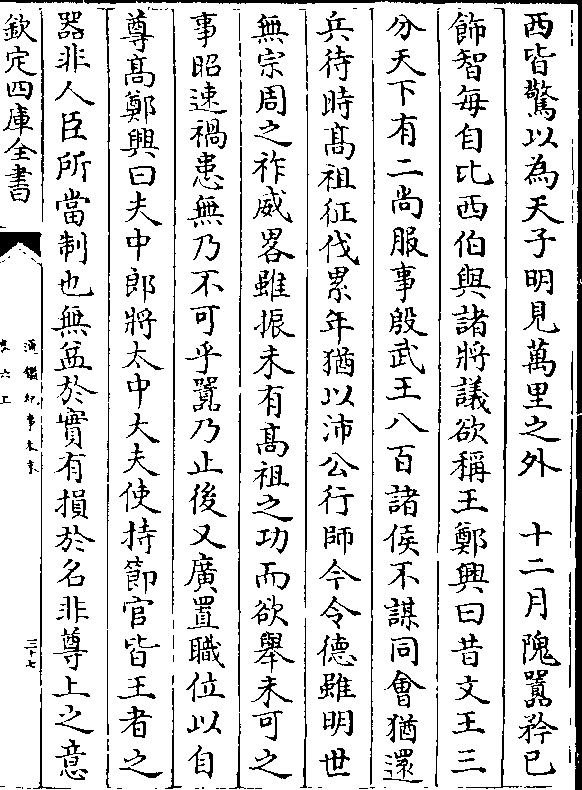 西皆驚以為天子明見萬里之外　十二月隗囂矜已
飾智每自比西伯與諸將議欲稱王鄭興曰昔文王三
分天下有二尚服事殷武王八百諸侯不謀同會猶還
兵待時高祖征伐累年猶以沛公行師今令德雖明世
無宗周之祚威畧雖振未有高祖之功而欲舉未可之
事昭速禍患無乃不可乎囂乃止後又廣置職位以自
尊高鄭興曰夫中郎將太中大夫使持節官皆王者之
器非人臣所當制也無益於實有損於名非尊上之意
欽定四庫全書
通鑑紀事本末
三十七